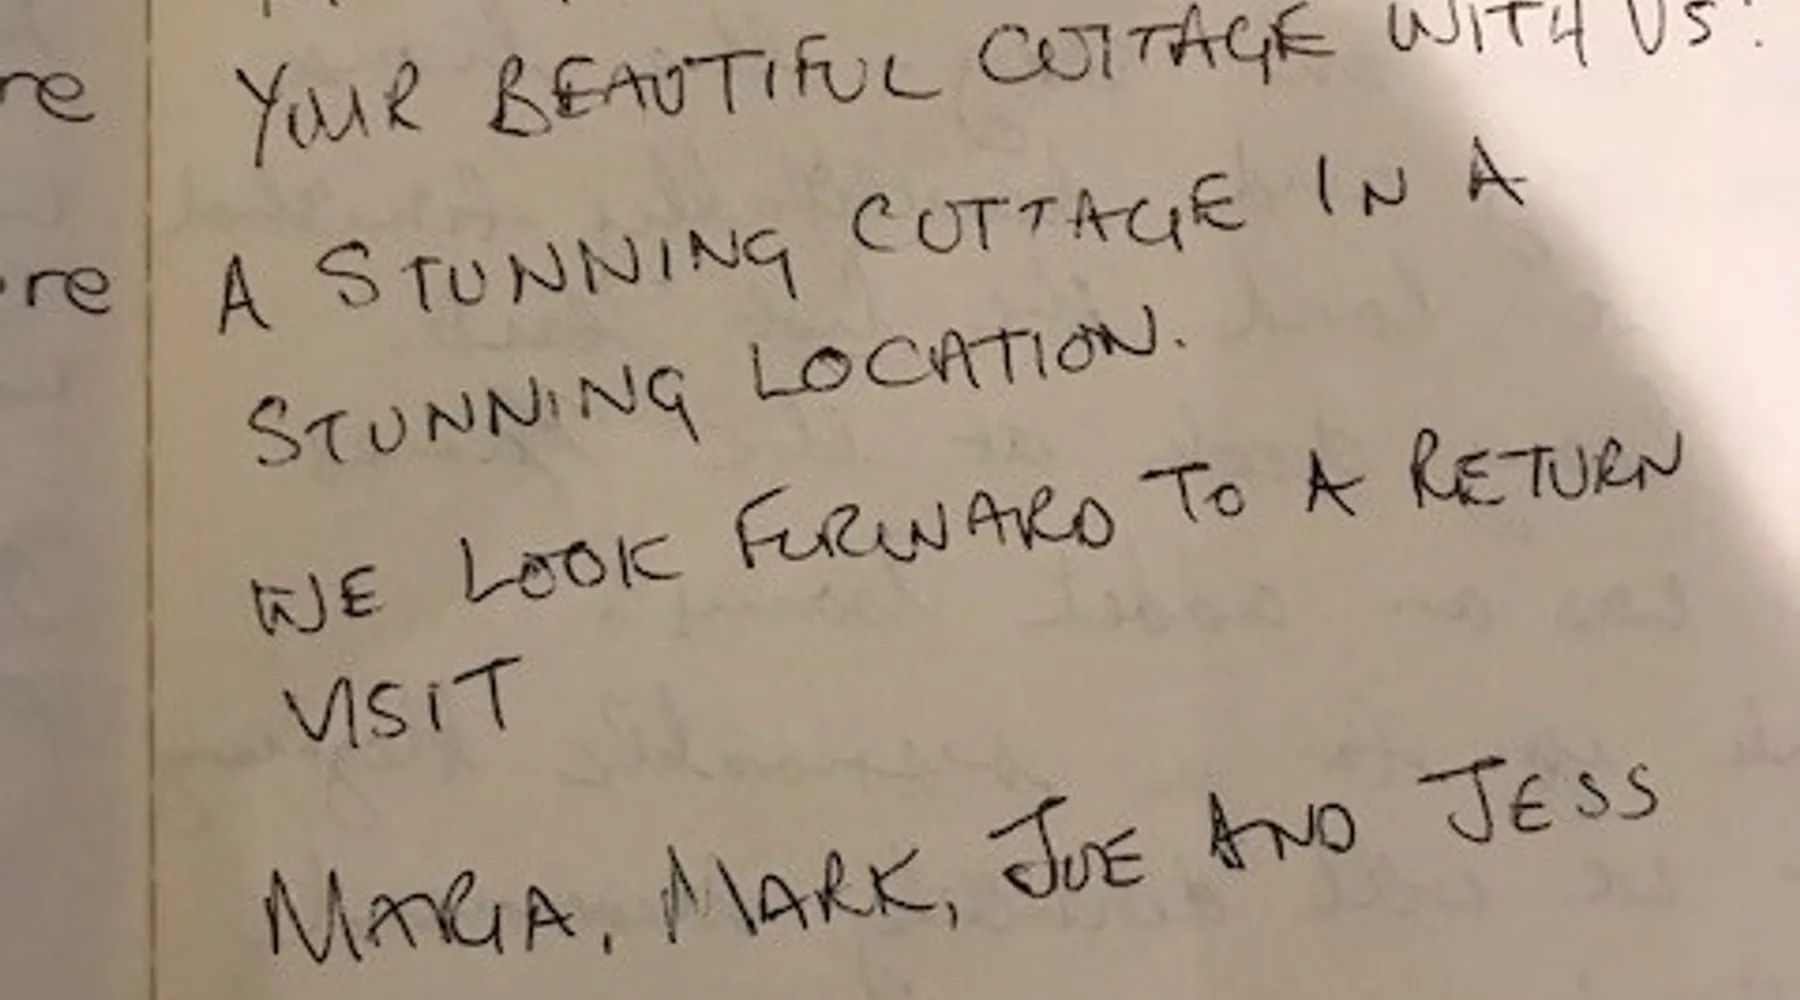 re
YOUR BEAUTIFUL COTTAGE WITH US!
re
A STUNNING COTTAGE IN A
STUNNING LOCATION.
WE LOOK FORWARD TO A RETURN
VISIT
MARIA, MARK, JOE AND JESS